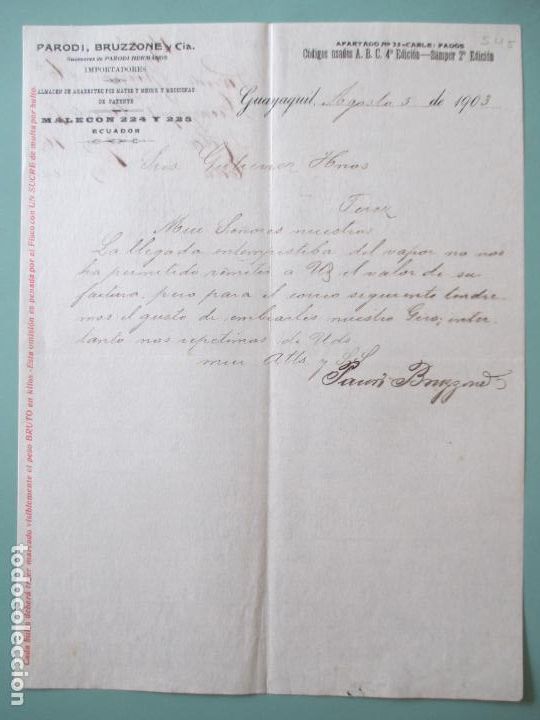 PARODI, BRUZZONE y Cia.
Sucesores de PARODI HERMANOS
IMPORTADORES
ALMACEN DE ABARROTES POR MAYOR Y MENOR Y MEDICINAS
DE PATENTE
MALECON 224 Y 225
ECUADOR
APARTADO No 38-CABLE: PADOS
Códigos usados A. B. C. 4ª Edición—Samper 2ª Edición
Guayaquil, Agosto 5 de 1903
Sres Gutierrez Hnos
Jerez
Muy Señores nuestros
La llegada intempestiba del vapor no nos
ha permitido remitir a Us el valor de su
factura, pero para el correo siguiente tendre-
mos el gusto de embiarles nuestro Giro, inter-
tanto nos repetimos de Uds
muy Atts y SS
Parodi Bruzzone
Cada bulto deberá traer marcado visiblemente el peso BRUTO en kilos.-Esta omisión es penada por el Fisco con UN SUCRE de multa por bulto.
todocoleccion